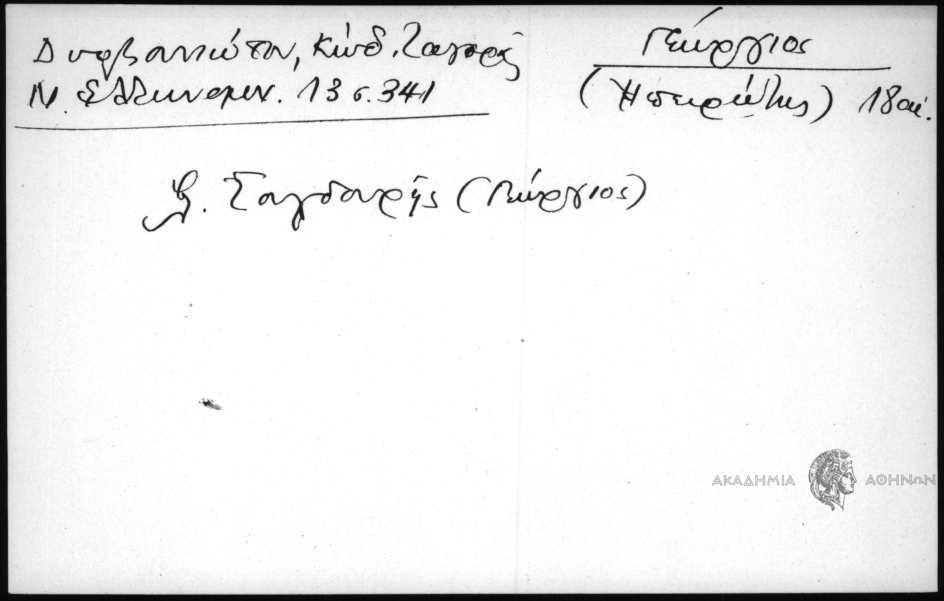 Δυοβουνιώτου, Κώδ. Ζαγορᾶς
Ν. Ἑλληνομν. 13 σ. 341
Γεώργιος
(Ἠπειρώτης) 18 αἰ.
(Γεώργιος)
ΑΚΑΔΗΜΙΑ ΑΘΗΝΩΝ